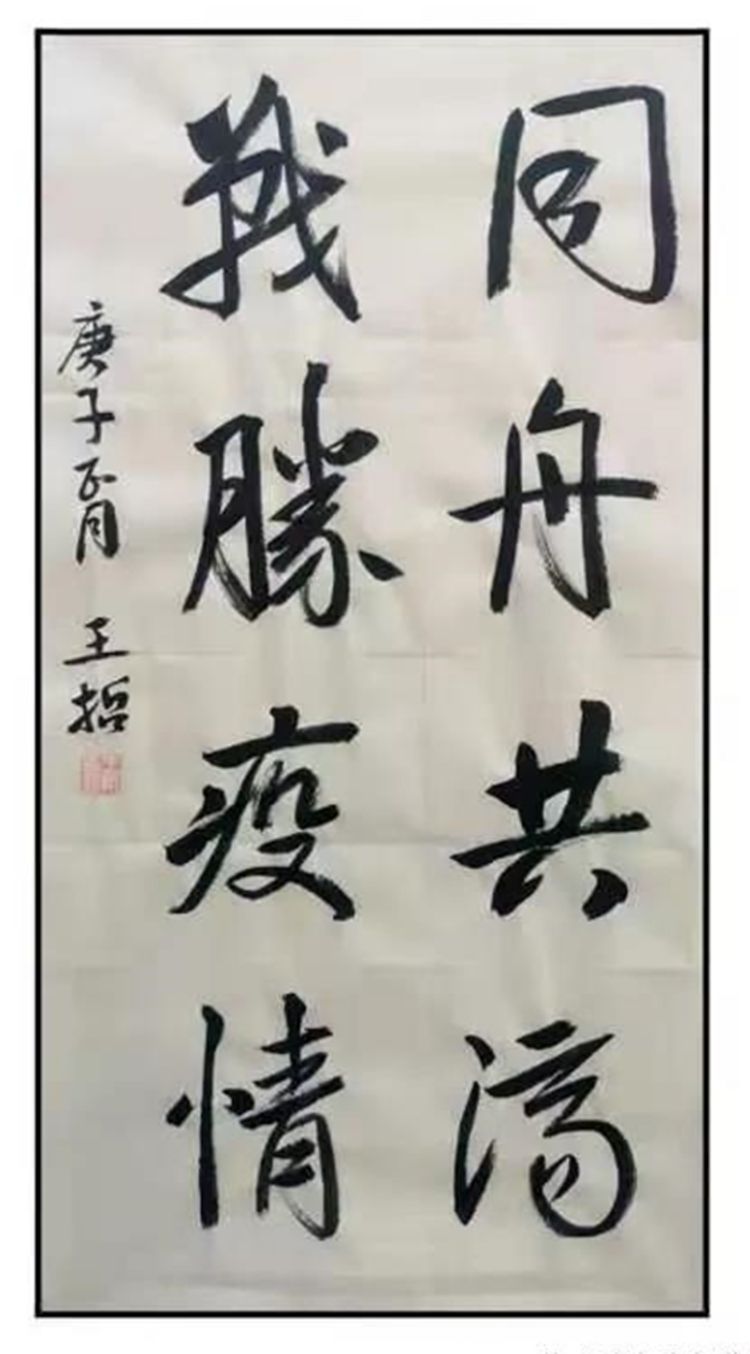 同舟共濟
戰勝疫情
庚子正月 王哲